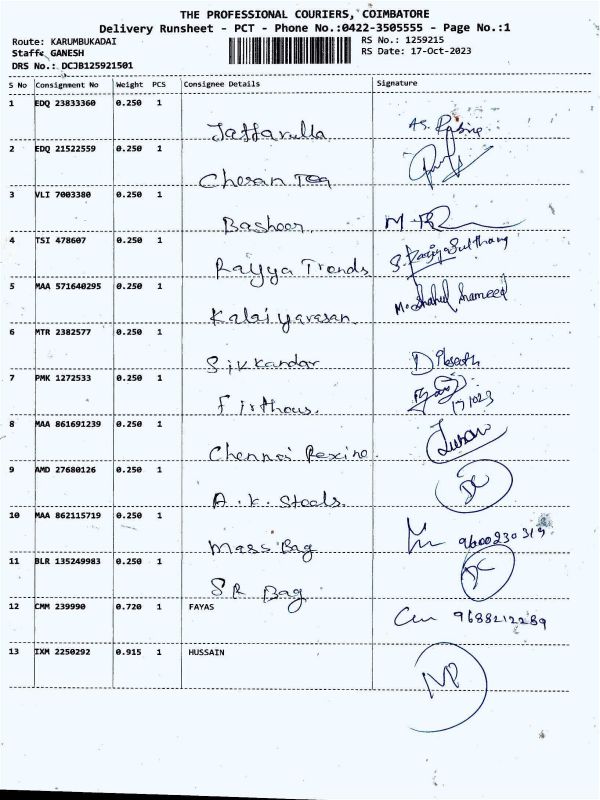 THE PROFESSIONAL COURIERS, COIMBATORE
Delivery Runsheet - PCT - Phone No.:0422-3505555 - Page No.:1
Route: KARUMBUKADAI RS No.: 1259215
Staff: GANESH RS Date: 17-Oct-2023
DRS No.: DCJB125921501
S No Consignment No Weight PCS Consignee Details Signature
1 EDQ 23833360 0.250 1
Jaffarulla
2 EDQ 21522559 0.250 1
Cheran Tea
3 VLI 7003380 0.250 1
Basheer. M.
4 TSI 478607 0.250 1
Raiyya Trends S. Raziya Sulthana
5 MAA 571640295 0.250 1
Kalaiyarasan. M. Shahul Hameed
6 MTR 2382577 0.250 1
Sikkandar
7 PMK 1272533 0.250 1
Firthous. 171023
8 MAA 861691239 0.250 1
Chennai Rexine.
9 AMD 27680126 0.250 1
A.K. Steels. DC
10 MAA 862115719 0.250 1
Mass Bag 9600230319
11 BLR 135249983 0.250 1
SR Bag DC
12 CMM 239990 0.720 1 FAYAS
9688212289
13 IXM 2250292 0.915 1 HUSSAIN